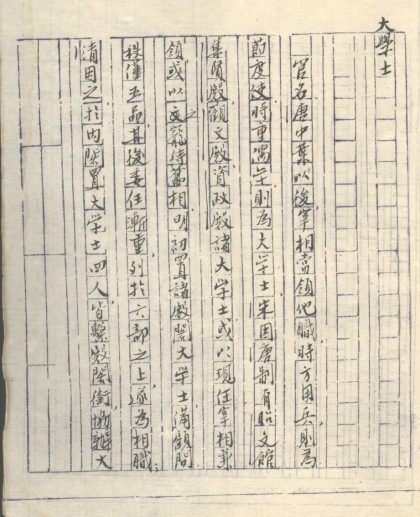 大學士
官名唐中葉以後宰相嘗領他職時方用兵則為
節度使時重儒学則為大学士宋因唐制有昭文館
集賢殿觀文殿資政殿諸大学士或以現任宰相兼
領或以之寵待舊相明初置諸殿閣大学士備顧問
秩僅五品其後委任漸重列於六部之上遂為相職
清因之於内閣置大学士四人皆繫殿閣銜協辦大